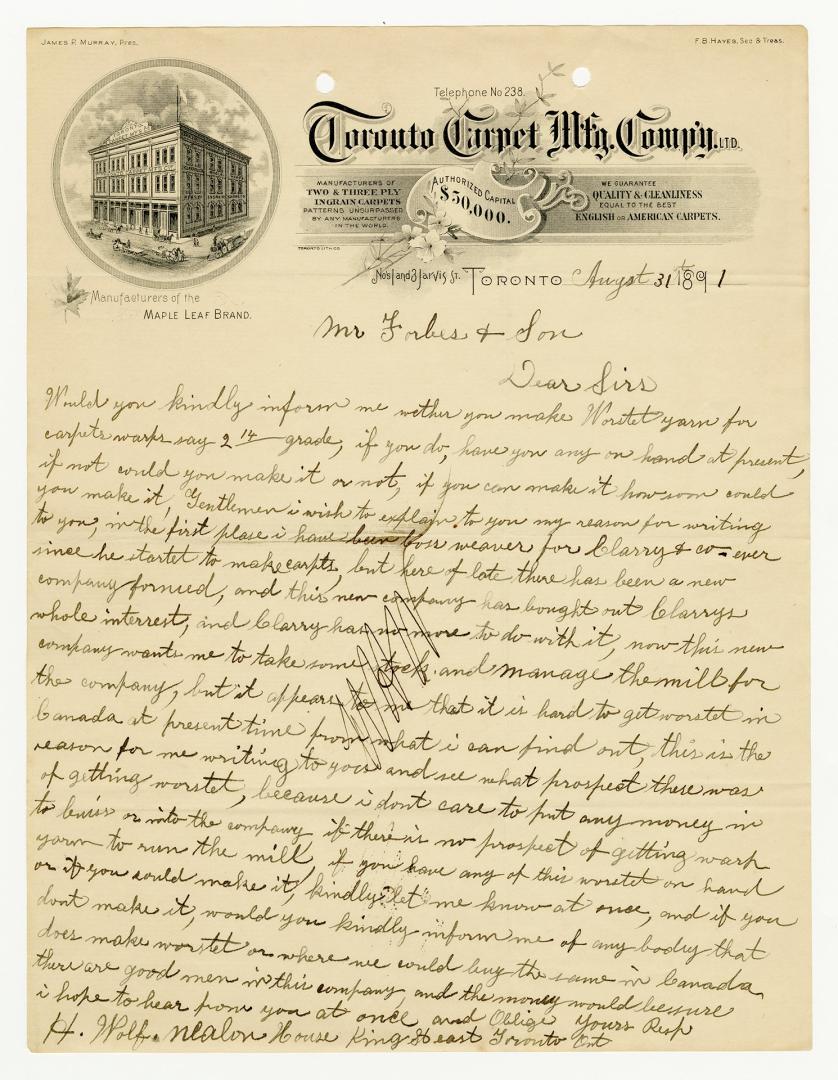 James P. Murray, Pres.
F. B. Hayes, Sec & Treas.
Telephone No 238.
Toronto Carpet Mfg. Compy. LTD.
MANUFACTURERS OF
TWO & THREE PLY
INGRAIN CARPETS
PATTERNS UNSURPASSED
BY ANY MANUFACTURERS
IN THE WORLD.
AUTHORIZED CAPITAL
$50,000.
WE GUARANTEE
QUALITY & CLEANLINESS
EQUAL TO THE BEST
ENGLISH OR AMERICAN CARPETS.
TORONTO LITH CO
Manufacturers of the
MAPLE LEAF BRAND.
Nos 1 and 3 Jarvis St. TORONTO Augst 31th 1891
Mr Forbes & Son
Dear Sirs
Would you kindly inform me wether you make Worstet yarn for
carpets warps say 2 14 grade, if you do, have you any on hand at present,
if not could you make it or not, if you can make it how soon could
you make it, Gentlemen i wish to explain to you my reason for writing
to you, in the first plase i have been boss weaver for Clarry & co ever
since he startet to make carpts, but here of late there has been a new
company formed, and this new company has bought out Clarrys
whole interrest, and Clarry has no more to do with it, now this new
company wants me to take some stock and manage the mill for
the company, but it appears to me that it is hard to get worstet in
Canada at present time from what i can find out, this is the
reason for me writing to you and see what prospect there was
of getting worstet, because i dont care to put any money in
to buiss or into the company if there is no prospect of getting warp
yarn to run the mill, if you have any of this worstet on hand
or if you could make it, kindly let me know at once, and if you
dont make it, would you kindly inform me of any body that
does make worstet or where we could buy the same in Canada
there are good men in this company, and the money would be sure
i hope to hear from you at once and Oblige Yours Resp
H. Wolf. Nealon House King St east Toronto Ont